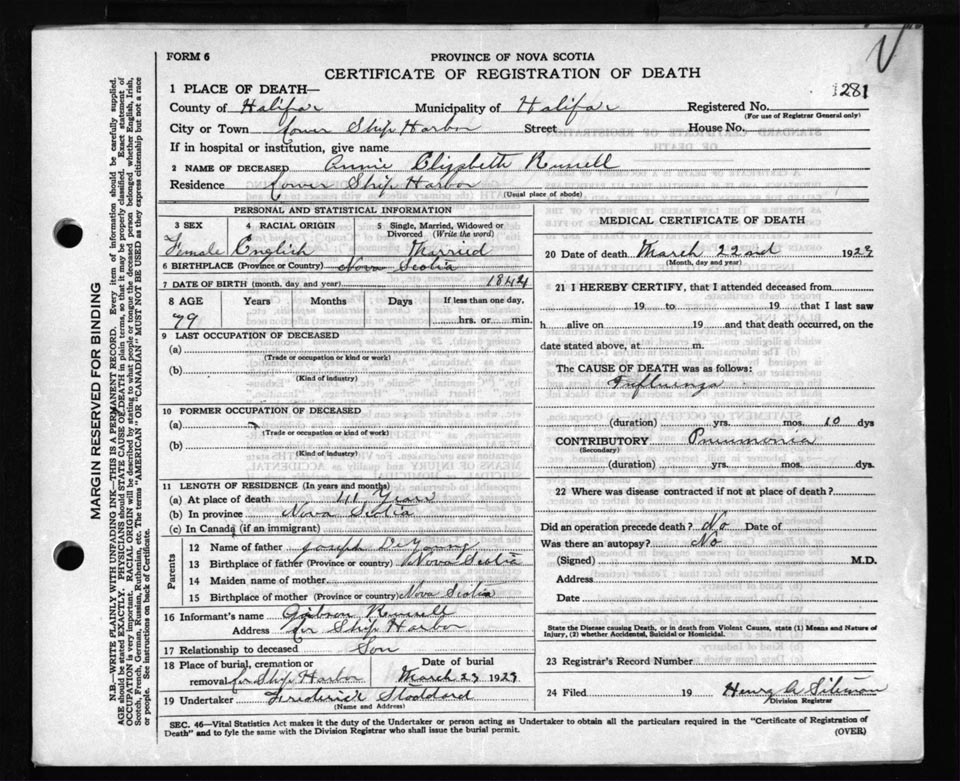 FORM 6
PROVINCE OF NOVA SCOTIA
CERTIFICATE OF REGISTRATION OF DEATH
1281
1 PLACE OF DEATH—
County of Halifax Municipality of Halifax Registered No.
(For use of Registrar General only)
City or Town Lower Ship Harbor Street House No.
If in hospital or institution, give name
2 NAME OF DECEASED Annie Elizabeth Russell
Residence Lower Ship Harbor
(Usual place of abode)
PERSONAL AND STATISTICAL INFORMATION
3 SEX 4 RACIAL ORIGIN 5 Single, Married, Widowed or Divorced (Write the word)
Female English Married
6 BIRTHPLACE (Province or Country) Nova Scotia
7 DATE OF BIRTH (month, day, and year) 1844
8 AGE Years Months Days If less than one day,
79 hrs. or min.
9 LAST OCCUPATION OF DECEASED
(a)
(Trade or occupation or kind or work)
(b)
(Kind of industry)
10 FORMER OCCUPATION OF DECEASED
(a)
(Trade or occupation or kind or work)
(b)
(Kind of industry)
11 LENGTH OF RESIDENCE (In years and months)
(a) At place of death 41 Years
(b) In province Nova Scotia
(c) In Canada (if an immigrant)
Parents
12 Name of father Joseph DeYoung
13 Birthplace of father (Province or country) Nova Scotia
14 Maiden name of mother
15 Birthplace of mother (Province or country) Nova Scotia
16 Informant's name Gibson Russell
Address Ship Harbor
17 Relationship to deceased Son
18 Place of burial, cremation or removal Ship Harbor Date of burial March 23 1923
19 Undertaker Frederick Stoddard
(Name and Address)
MEDICAL CERTIFICATE OF DEATH
20 Date of death March 22nd 1923
(Month, day and year)
21 I HEREBY CERTIFY, that I attended deceased from
19 to 19 that I last saw
h alive on 19 and that death occurred, on the
date stated above, at m.
The CAUSE OF DEATH was as follows:
Influenza
(duration) yrs. mos. 10 dys
CONTRIBUTORY Pneumonia
(Secondary)
(duration) yrs. mos. dys.
22 Where was disease contracted if not at place of death?
Did an operation precede death? No Date of
Was there an autopsy? No
(Signed) M.D.
Address
Date
State the Disease causing Death, or in death from Violent Causes, state (1) Means and Nature of Injury, (2) whether Accidental, Suicidal or Homicidal.
23 Registrar's Record Number
24 Filed 19 Henry A
Division Registrar
SEC. 46—Vital Statistics Act makes it the duty of the Undertaker or person acting as Undertaker to obtain all the particulars required in the "Certificate of Registration of
Death" and to fyle the same with the Division Registrar who shall issue the burial permit.
(OVER)
MARGIN RESERVED FOR BINDING
N.B.—WRITE PLAINLY WITH UNFADING INK—THIS IS A PERMANENT RECORD. Every item of information should be carefully supplied.
AGE should be stated EXACTLY. PHYSICIANS should STATE CAUSE OF DEATH in plain terms, so that it may be properly classified. Exact statement of
OCCUPATION is very important. RACIAL ORIGIN will be described by stating to what people or tongue the deceased person belonged whether English, Irish,
Scotch, French, German, Russian, Ruthenian, etc. The terms "AMERICAN" OR "CANADIAN" MUST NOT BE USED as they express citizenship but not a race
or people. See instructions on back of Certificate.